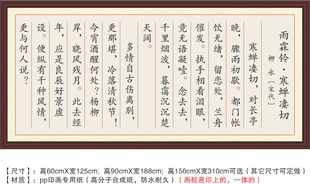 雨霖铃·寒蝉凄切
柳 永【宋代】
寒蝉凄切,对长亭
晚,骤雨初歇。都门帐
饮无绪,留恋处,兰舟
催发。执手相看泪眼,
竟无语凝噎。念去去,
千里烟波,暮霭沉沉楚
天阔。
多情自古伤离别,
更那堪,冷落清秋节!
今宵酒醒何处?杨柳
岸,晓风残月。此去经
年,应是良辰好景虚
设。便纵有千种风情,
更与何人说?
【尺寸】：高60cmX宽125cm; 高90cmX宽188cm; 高150cmX宽310cm可选（其它尺寸可定做）
【材质】：pp印画专用纸（高分子合成纸，防水耐久）（画框是印上的，一体的）